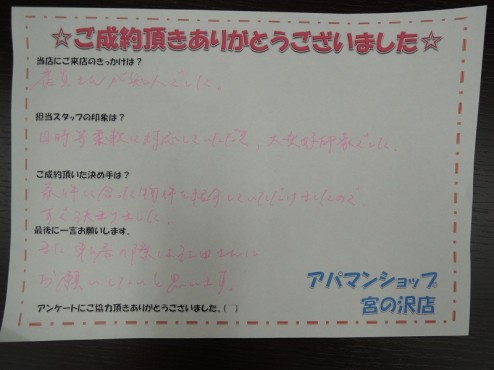 ☆ご成約頂きありがとうございました☆
当店にご来店のきっかけは？
店員さんが でした。
担当スタッフの印象は？
日時等柔軟に対応していただき、大変好印象でした。
ご成約頂いた決め手は？
条件に合った物件を紹介していただけましたので
すぐ決まりました。
最後に一言お願いします。
また の際は にお願いしたいと思います。
アンケートにご協力頂きありがとうございました。(^^)
アパマンショップ
宮の沢店